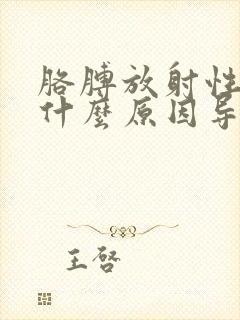 胳膊放射性
什麼原因导
王啓